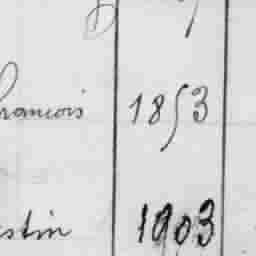 François 1853
stin 1903